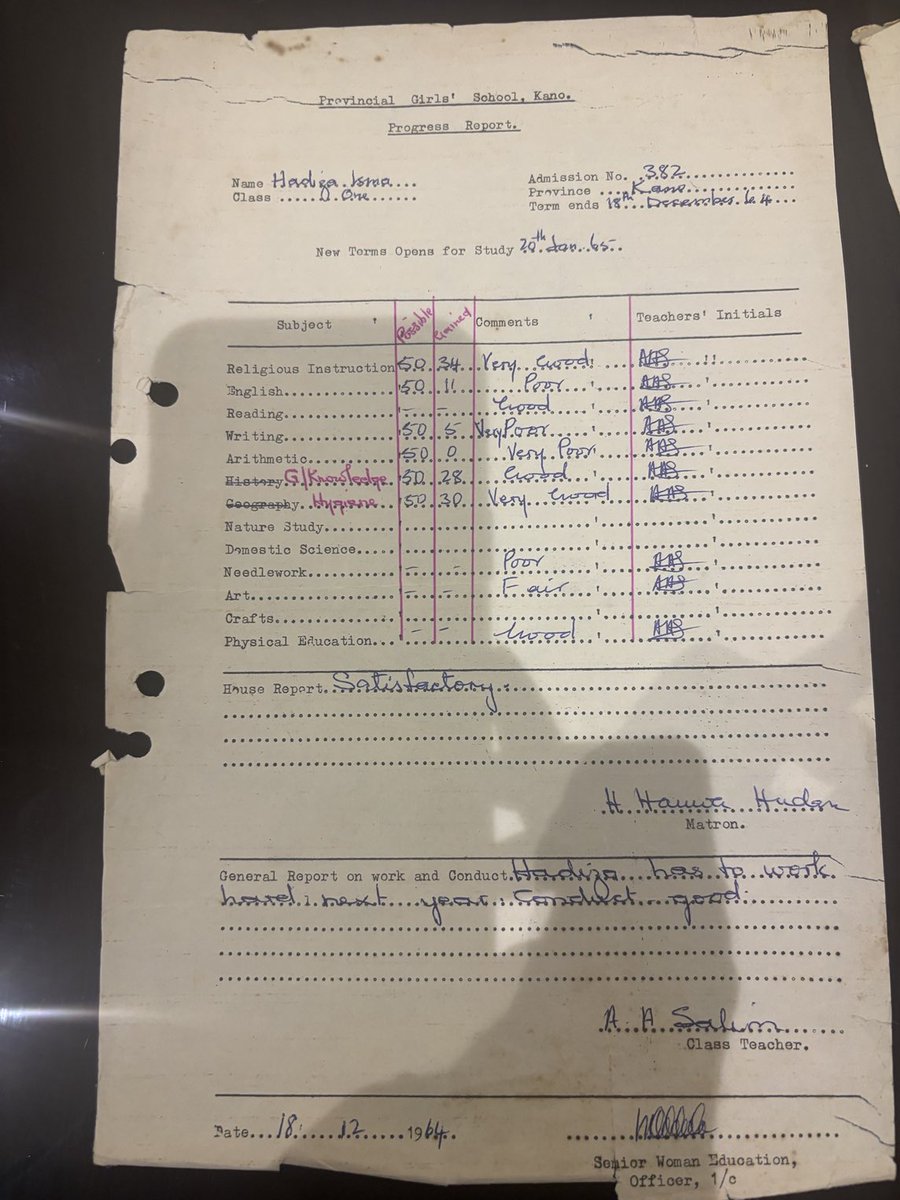 Provincial Girls' School, Kano.
Progress Report.
Name Hadiza Isma
Admission No. 382
Class One
Province Kano
Term ends 18th December 64
New Terms Opens for Study 20th Jan. 65
Subject ' Possible Gained Comments ' Teachers' Initials
Religious Instruction 50 34 Very Good AAS
English 50 11 Poor AAS
Reading - - Good AAS
Writing 50 5 Very Poor AAS
Arithmetic 50 0 Very Poor AAS
History G/Knowledge 50 28 Good AAS
Geography Hygiene 50 30 Very Good AAS
Nature Study
Domestic Science
Needlework - - Poor AAS
Art - - Fair AAS
Crafts
Physical Education - - Good AAS
House Report Satisfactory.
H Hauwa
Matron.
General Report on work and Conduct. Hadiza has to work
hard next year. Conduct good
A. A Salim
Class Teacher.
Date 18. 12 1964
Senior Woman Education,
Officer, 1/c